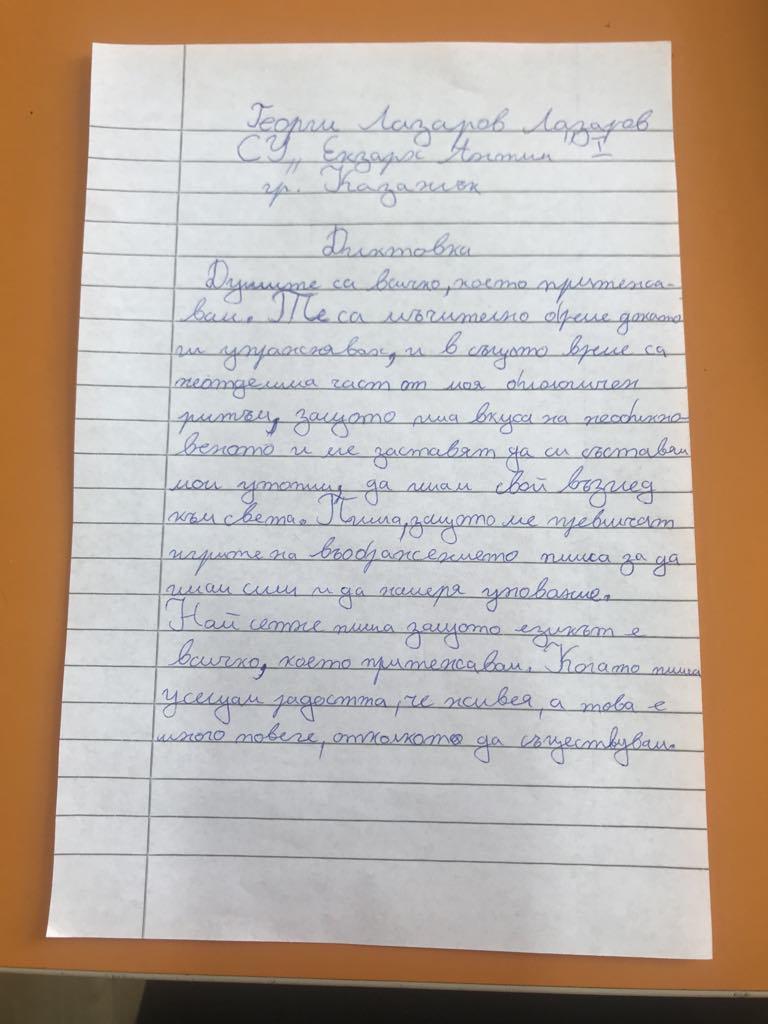 Георги Лазаров Лазаров
СУ „ Екзарх Антим I"
гр. Казанлък
Диктовка
Думите са всичко, което притежа-
вам. Те са мъчително бреме докато
ги упражнявам, и в същото време са
неотделима част от моя биологичен
ритъм, защото има вкуса на необикно-
веното и ме заставят да си съставям
мои утопии, да имам свой възглед
към света. Пиша, защото ме превличат
игрите на въображението пиша за да
имам сили и да намеря упование.
Най сетне пиша защото езикът е
всичко, което притежавам. Когато пиша
усещам радостта, че живея, а това е
много повече, отколкото да съществувам.